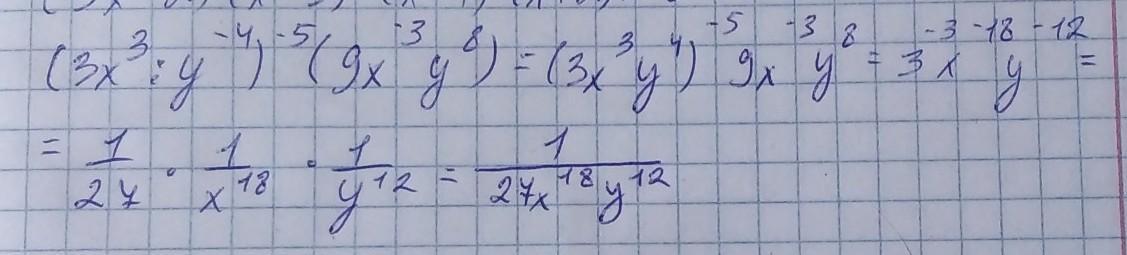 (3x³ : y⁻⁴)⁻⁵ (9x⁻³ y⁸) = (3x³y⁴)⁻⁵ 9x⁻³ y⁸ = 3⁻³ x⁻¹⁸ y⁻¹² =
= 1/27 · 1/x¹⁸ · 1/y¹² = 1/27x¹⁸y¹²